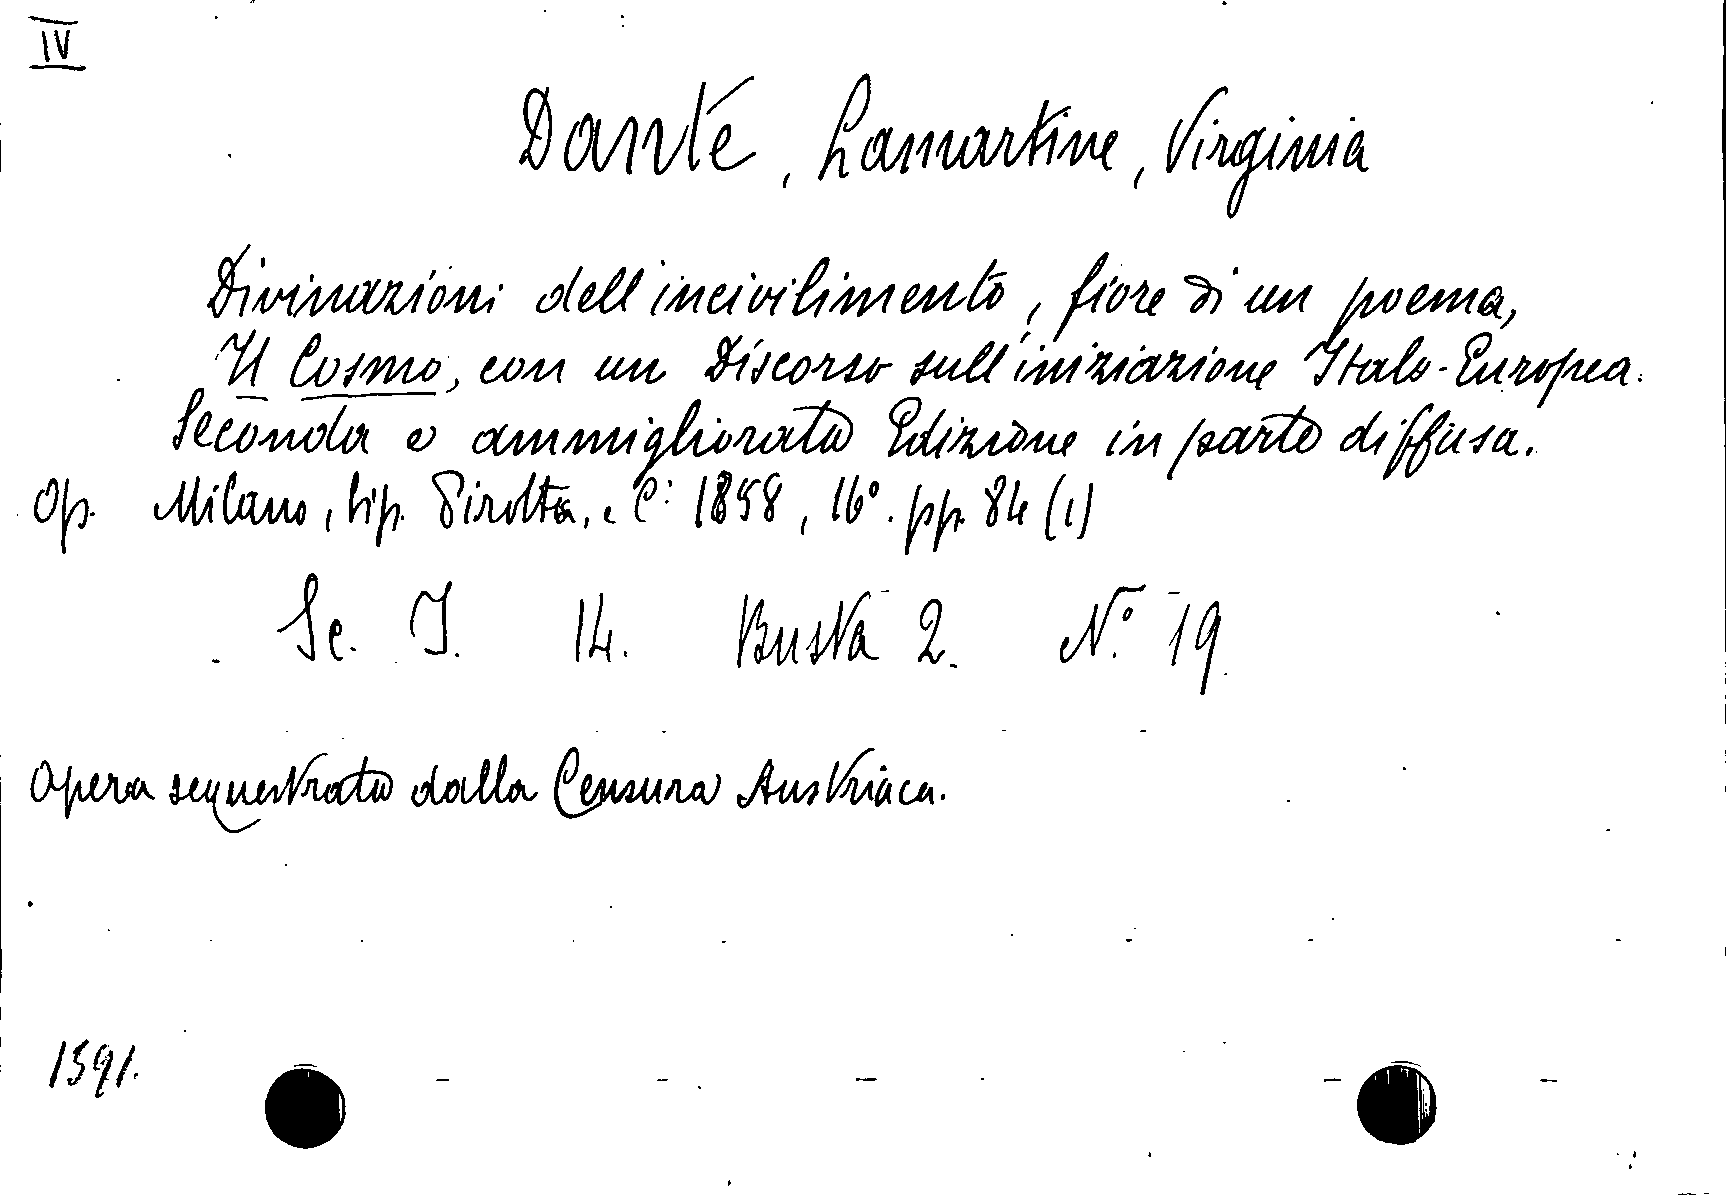 IV
Dante, Lamartine, Virginia
Divinazioni dell'incivilimento, fiore di un poema,
Il Cosmo, con un Discorso sull'iniziazione Italo-Europea.
Seconda e ammigliorata Edizione in parte diffusa.
Op. Milano, tip. Pirotta, e C: 1858, 16°. pp. 84 (1)
Sc. I. 14. Busta 2. N.° 19.
Opera sequestrata dalla Censura Austriaca.
1591.